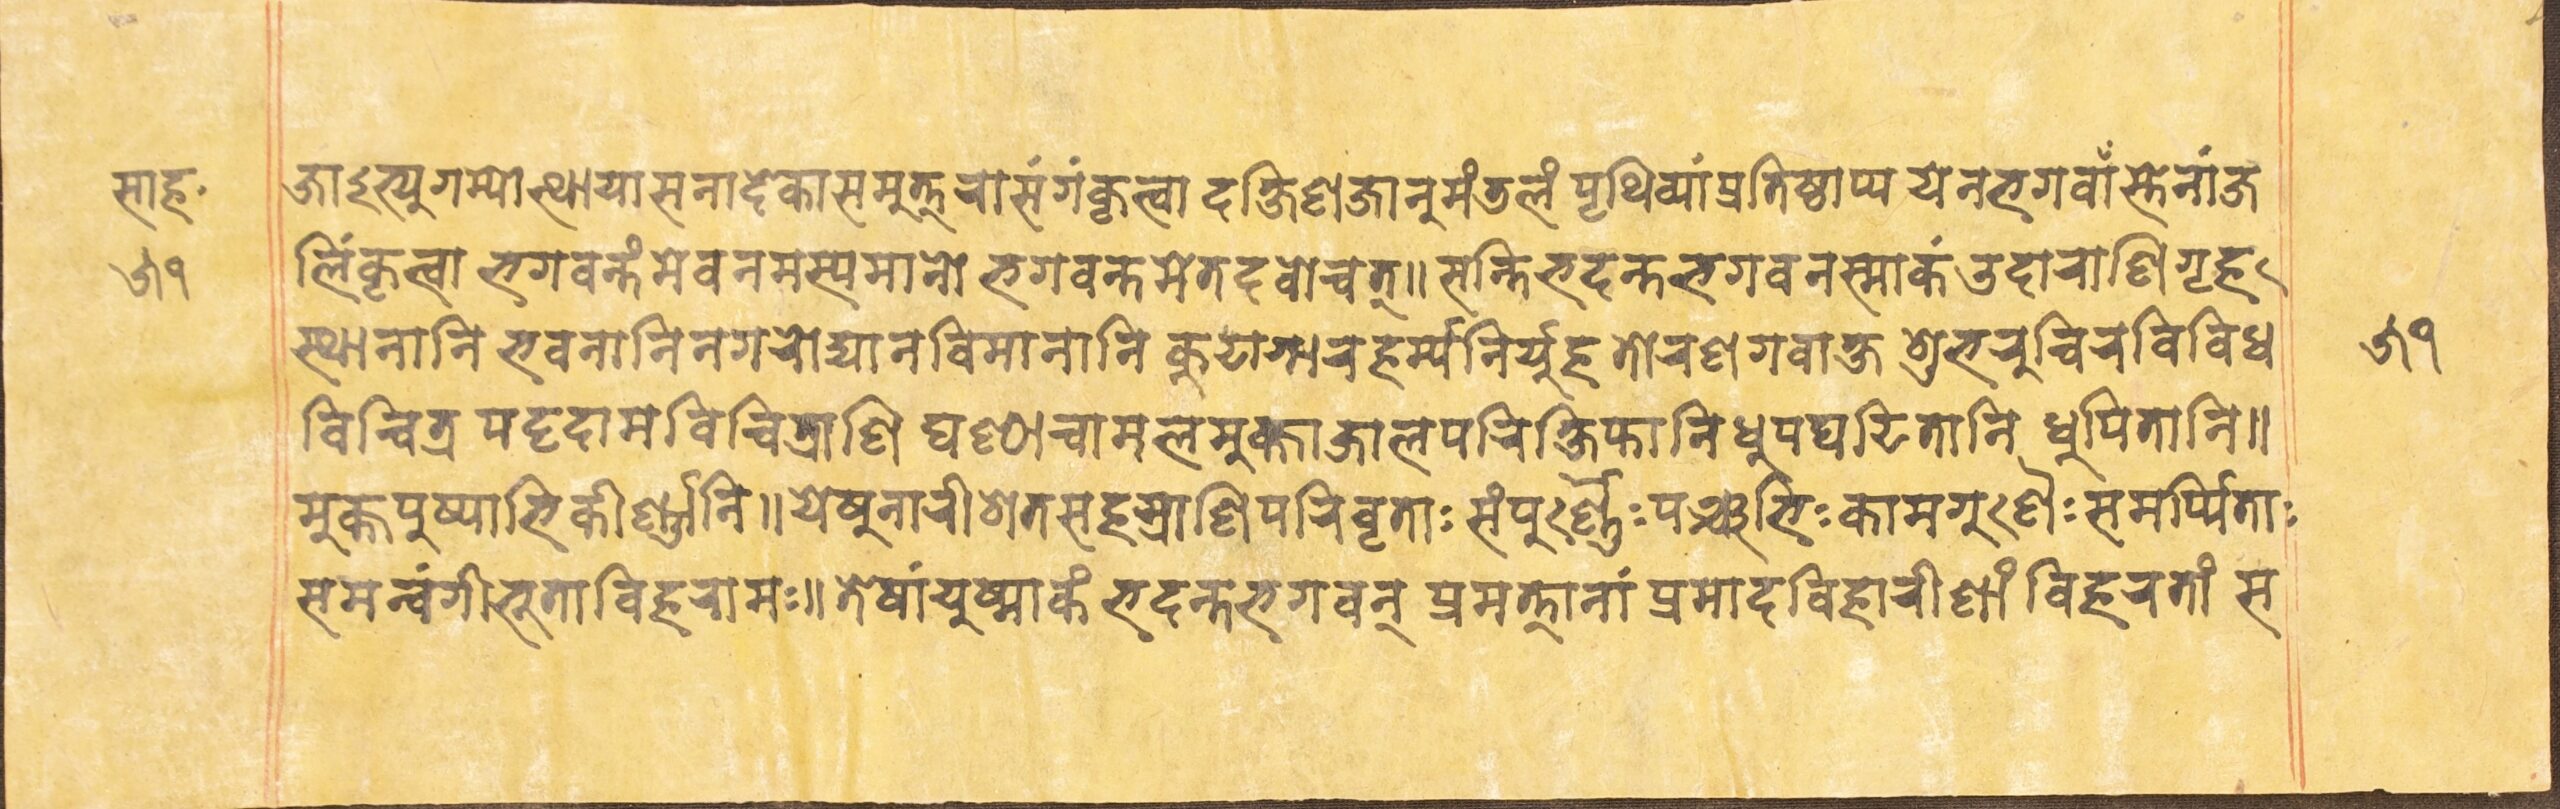 साह॰
जाऽभ्युगम्योत्थायासनादेकासमुत्त्रासंगंकृत्वा दक्षिणजानुमंतलं पृथिव्यांप्रतिष्ठाप्य येनभगवाँस्तेनांज
५१
लिंकृत्वा भगवन्तंमेवनमस्यमानो भगवन्तमेतदवोचत्॥ सन्तिभदन्तभगवनस्माकं उदाराणिगृह
स्थानानि भवनानिनगरोद्यानविमानानि कुटागारहर्म्यनिर्युहतोरणगवाक्ष शुभरुचिरविविध
५१
विचित्र पट्टदामविचित्राणि घण्ठाचामलमुक्ताजालपरिक्षिप्तानिधुपघटितानि धुपितानि॥
मुक्तपुष्पाभिकीर्ण्णानि॥ येषुनारीशतसहस्राणिपरिवृताः संपुर्ण्णैः पञ्चभिः कामगुणैः समर्प्पिताः
समन्वंगीभूताविहरामः॥ तेषांयुष्माकं भदन्तभगवन् प्रमत्तानां प्रमादविहारीणां विहरतां स